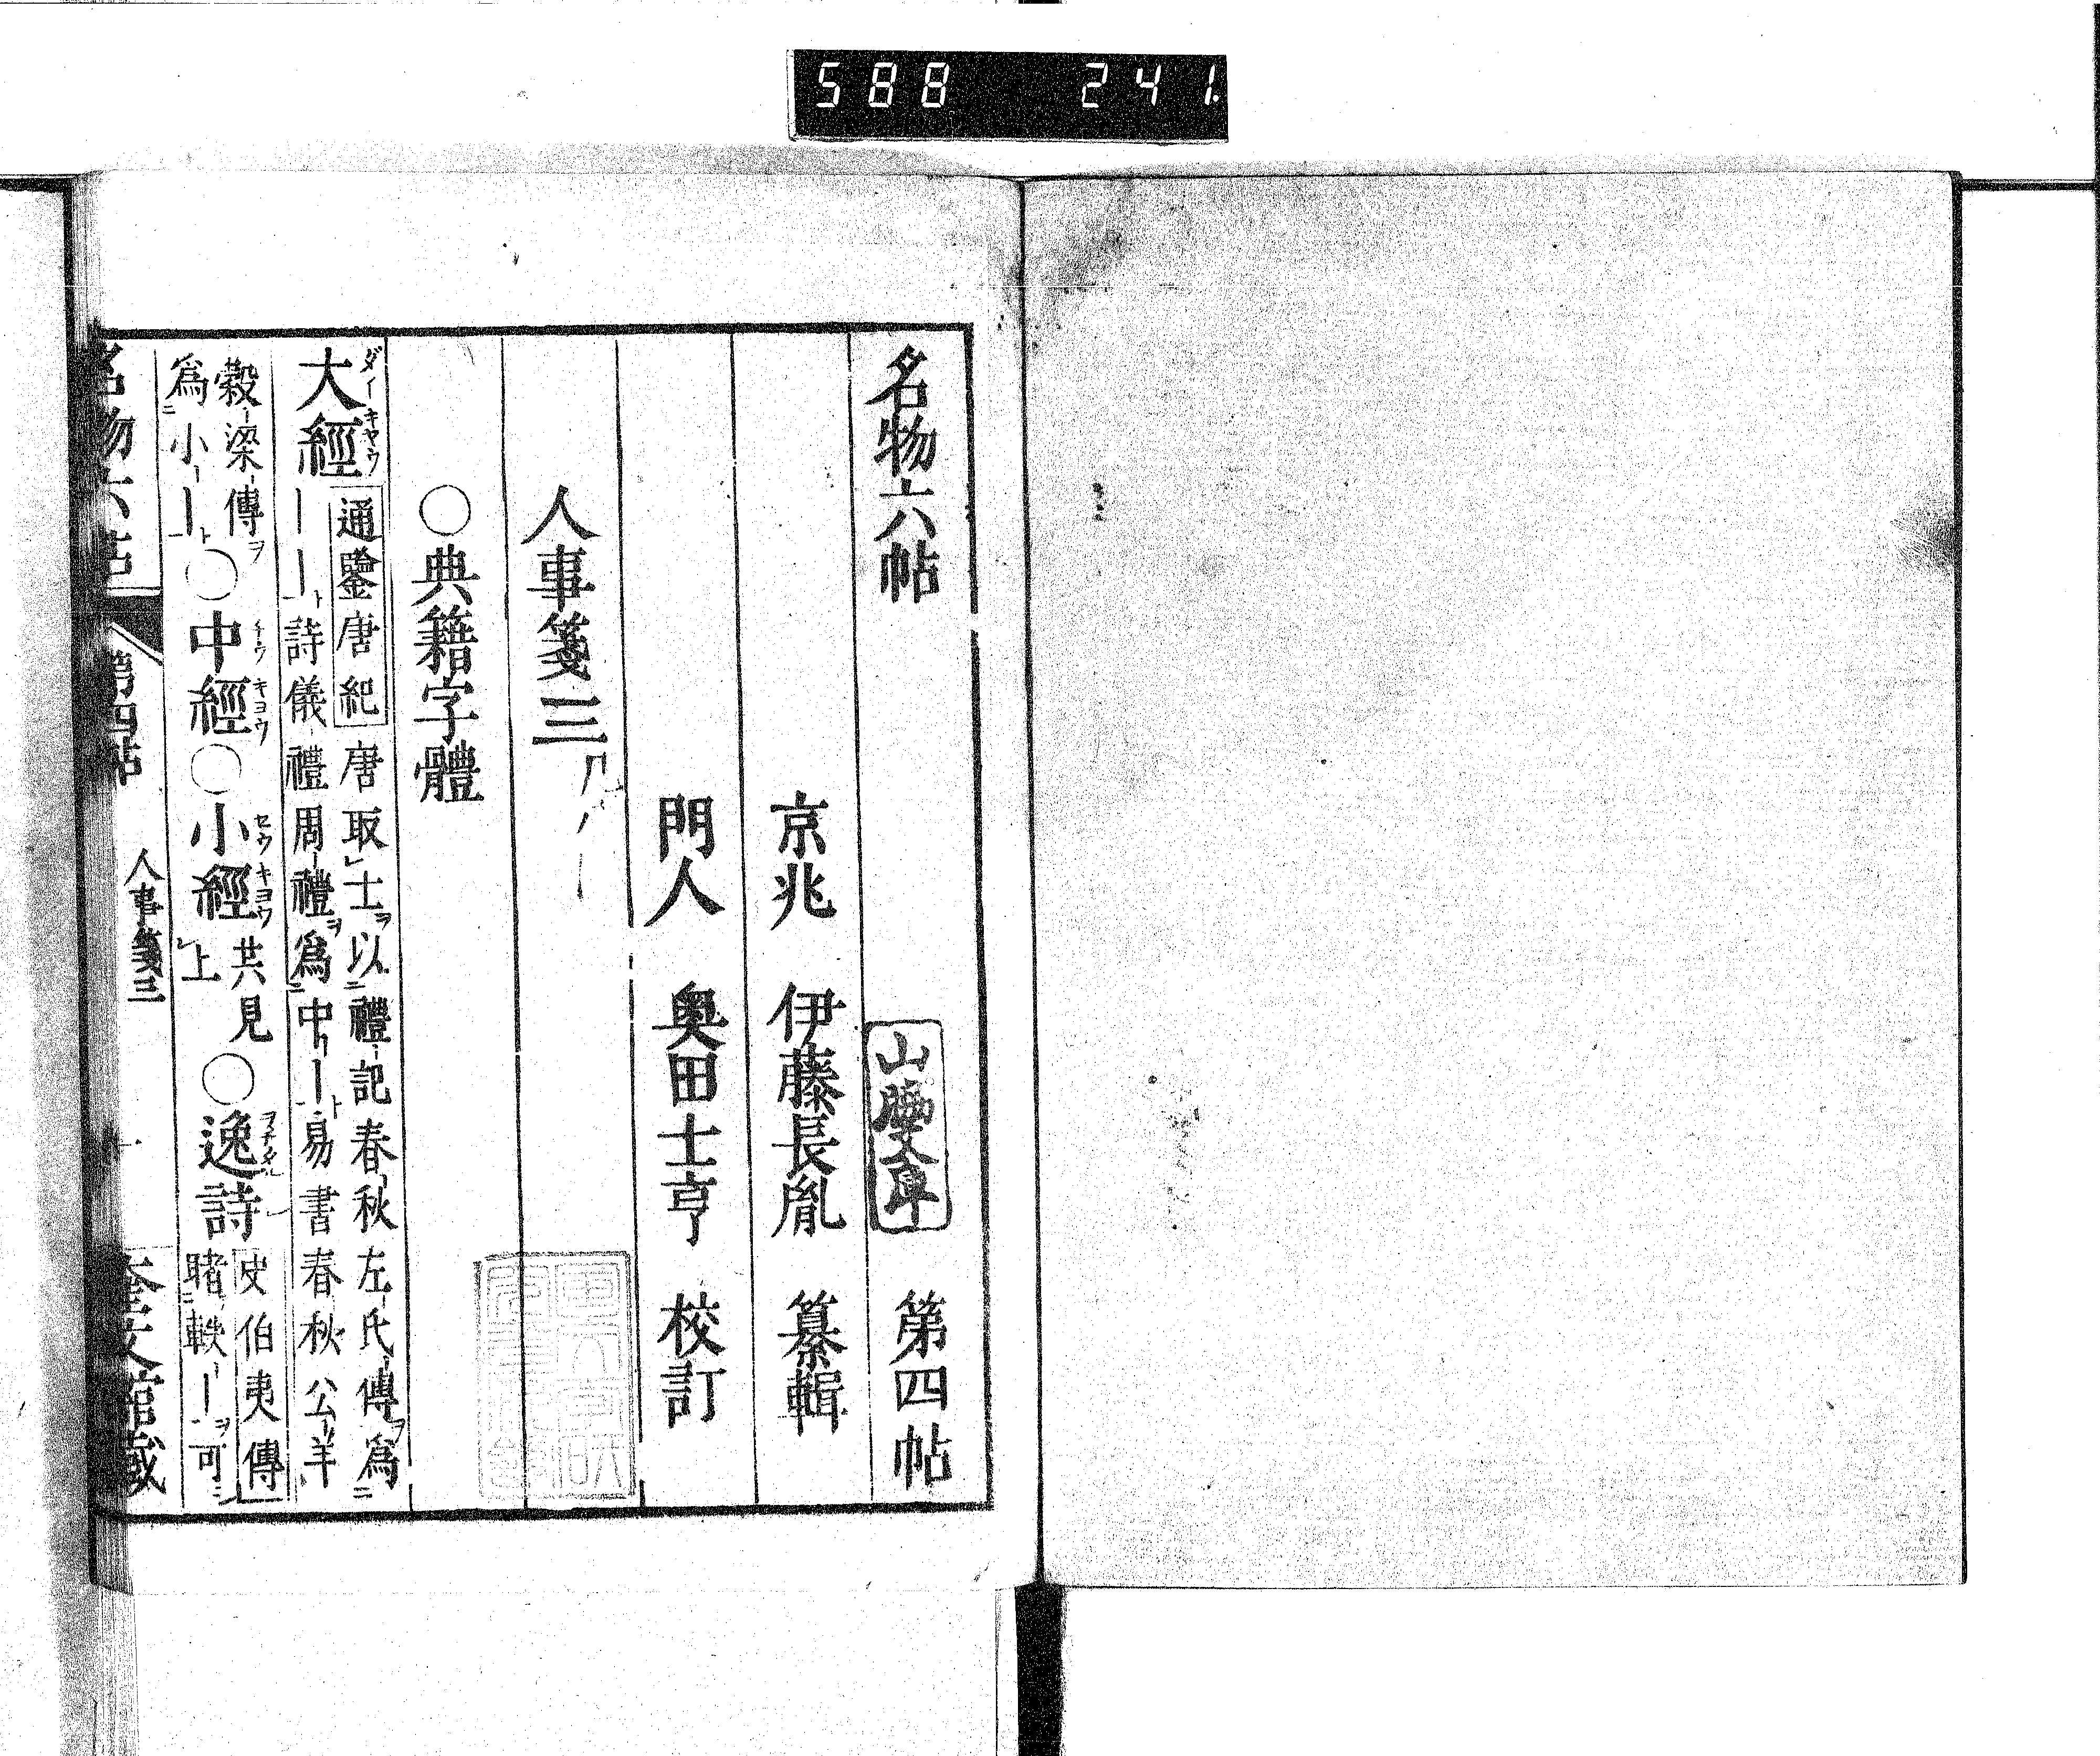 588 241
名物六帖 第四帖
山脇文庫
京兆 伊藤長胤 纂輯
門人 奧田士亨 校訂
人事箋三
○典籍字體
大經 ダイキヤウ 通鑒唐紀 唐取レ士ヲ以二禮記春秋左氏傳ヲ爲二
｜｜ト詩儀禮周禮ヲ爲二中｜一ト易書春秋公羊
穀梁傳ヲ
爲二小｜一ト○中經 チウキヨウ ○小經 セウキヨウ 共見
レ上 ○逸詩 史伯夷傳
睹二軼｜一ヲ可
名物六帖 第四帖 人事箋三 一 奎文館藏